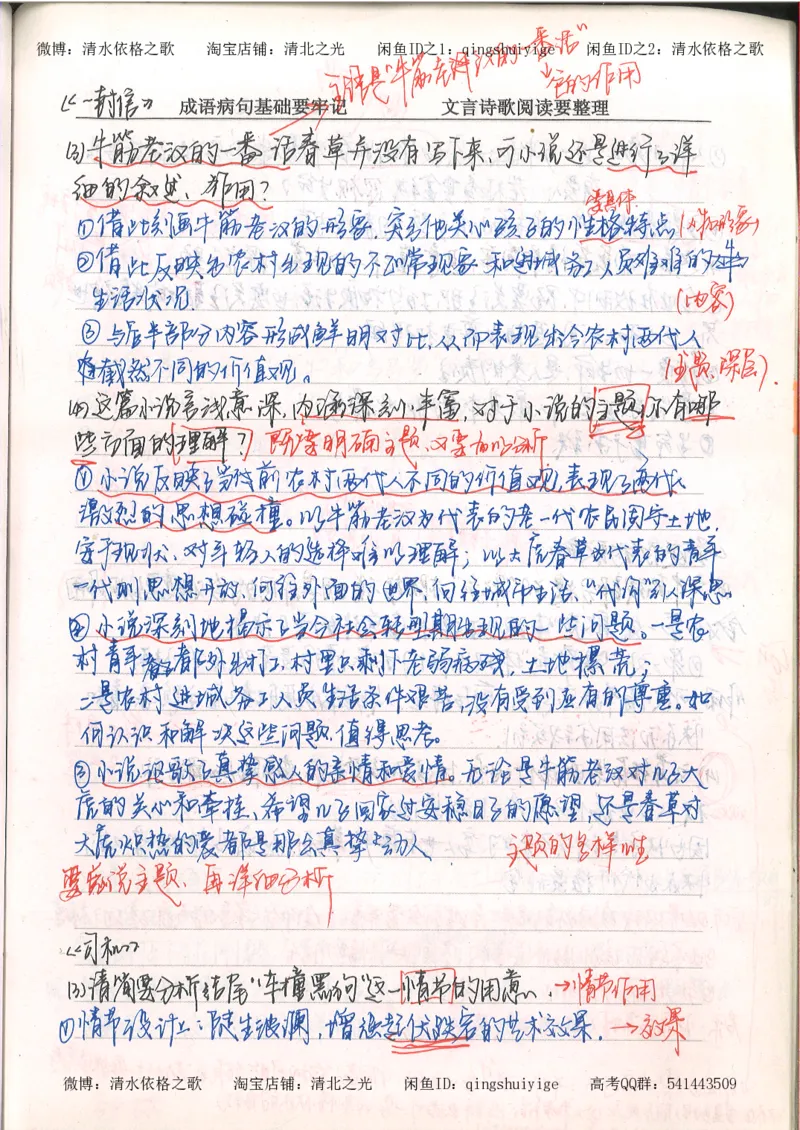 微博：清水依格之歌　　淘宝店铺：清北之光　　闲鱼ID之1：qingshuiyige　　闲鱼ID之2：清水依格之歌
主语是"牛筋老汉的一番话"
它的作用
《一封信》　成语病句基础要牢记　　文言诗歌阅读要整理
(3)牛筋老汉的一番话春草并没有写下来,可小说还是进行了详
细的叙述、作用?
要具体
①借此刻画牛筋老汉的形象,突出他关心孩子的性格特点 (人物形象)
②借此反映出农村出现的不正常现象和进城务工人员艰难的
生活状况. (内容)
③与后半部分内容形成鲜明对比,从而表现出今农村两代人
截然不同的价值观。 (主题、深层).
(4)这篇小说言浅意深,内涵深刻、丰富,对于小说的主题,你有哪
些方面的理解? 既要明确主题、又要加以分析
①小说反映了当前农村两代人不同的价值观,表现了两代
激烈的思想碰撞。以牛筋老汉为代表的老一代农民固守土地,
安于现状、对年轻人的选择难以理解;以大虎春草为代表的青年
一代则思想开放,向往外面的世界,向往城市生活,"代沟"引人深思
②小说深刻地揭示了当今社会转型期出现的一些问题。一是农
村青年都外出打工,村里只剩下老弱病残,土地撂荒;
二是农村进城务工人员生活条件艰苦,没有受到应有的尊重。如
何认识和解决这些问题,值得思考。
③小说讴歌了真挚感人的亲情和爱情。无论是牛筋老汉对儿子大
虎的关心和牵挂,希望儿子回家过安稳日子的愿望,还是春草对
大虎炽热的爱都是那么真挚动人 主题的多样性
要概说主题、再详细分析
《司机》
(3)请简要分析结尾"车撞黑狗"这一情节的用意. →情节作用
①情节设计上:陡生波澜,增强起伏跌宕的艺术效果. →效果
微博：清水依格之歌　　淘宝店铺：清北之光　　闲鱼ID：qingshuiyige　　高考QQ群：541443509